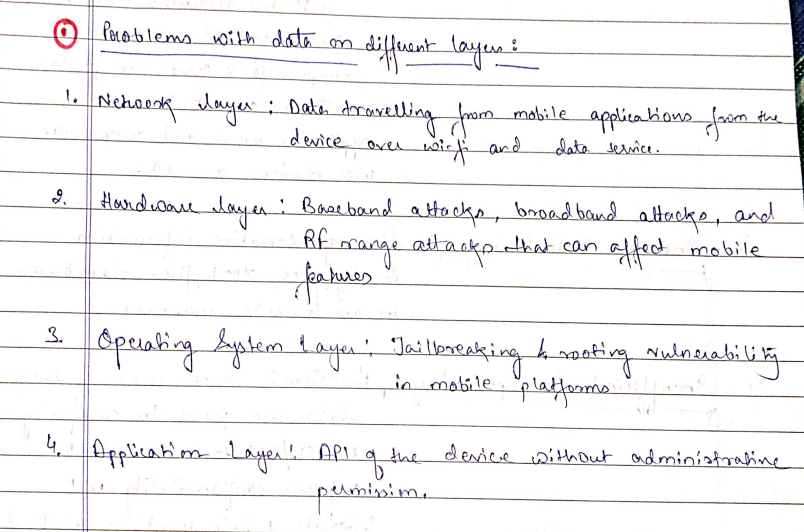 Problems with data on different layers :
1. Network layer : Data travelling from mobile applications from the
device over wi-fi and data service.
2. Hardware layer : Baseband attacks, broadband attacks, and
RF range attacks that can affect mobile
features
3. Operating System Layer : Jailbreaking & rooting vulnerability
in mobile platforms
4. Application Layer : API of the device without administrative
permission.